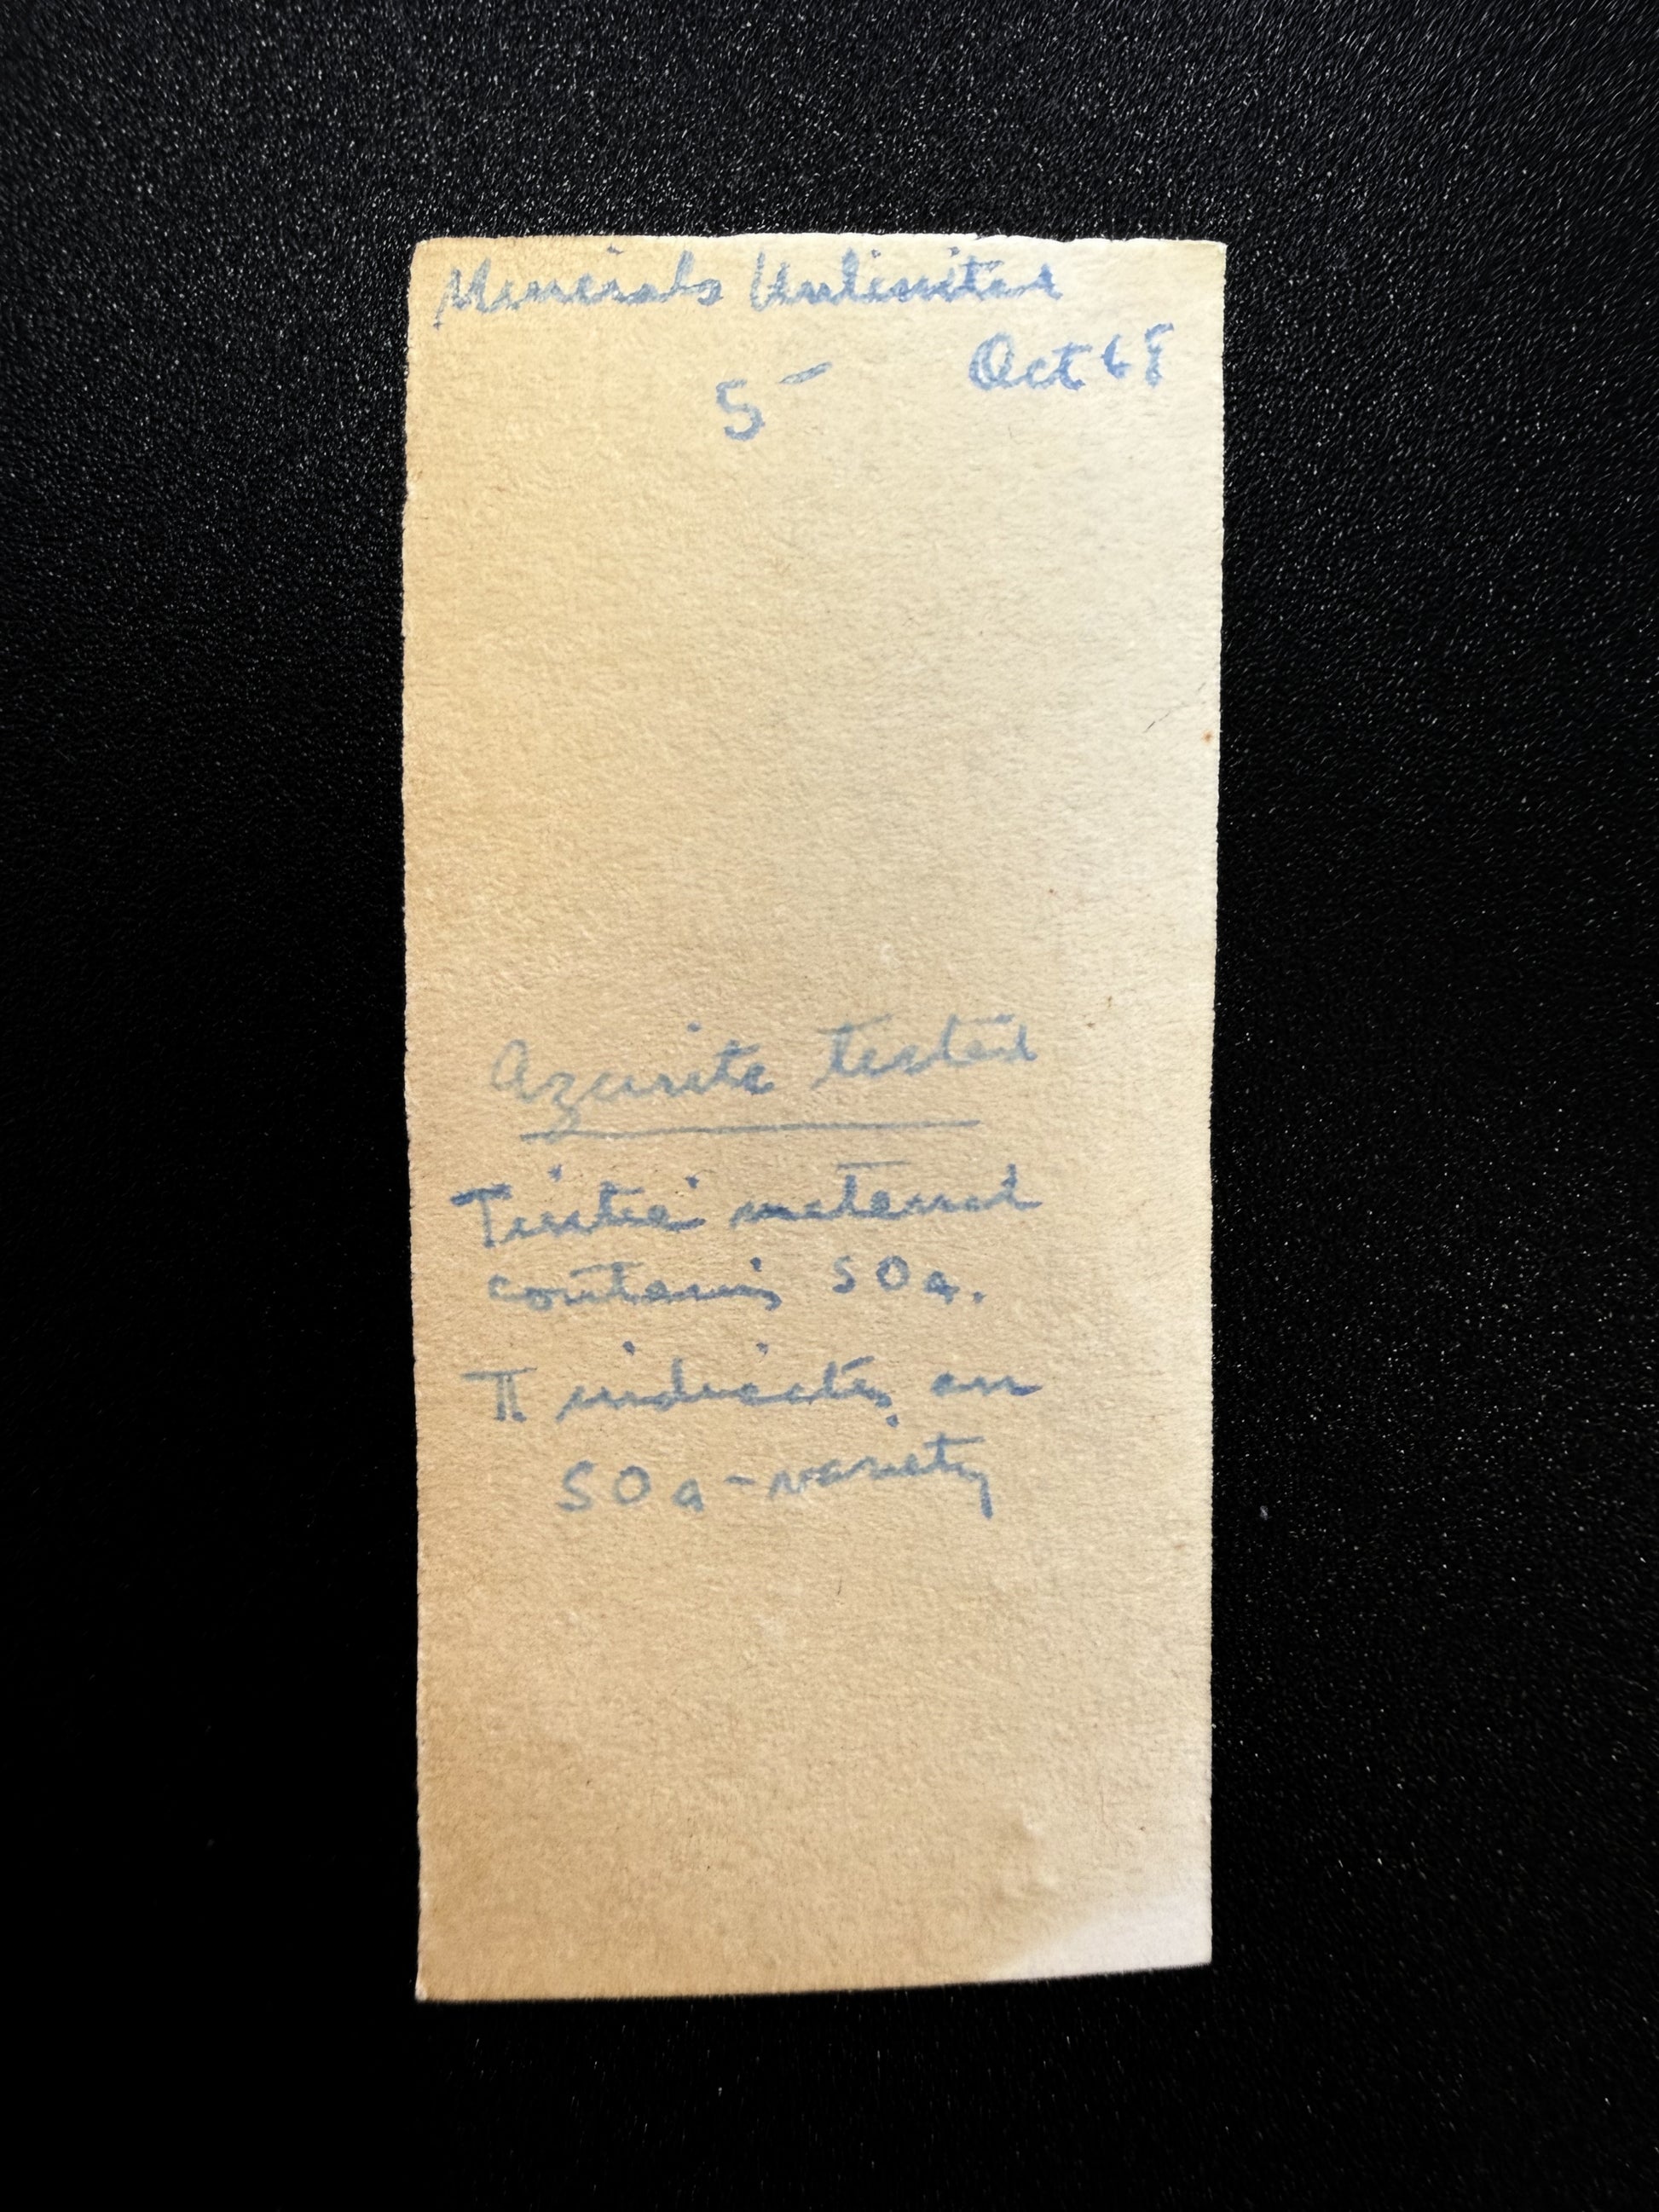 Minerals Unlimited
Oct 68
5 –
Azurite tested
material
contains SO4.
π indicates an
SO4-variety